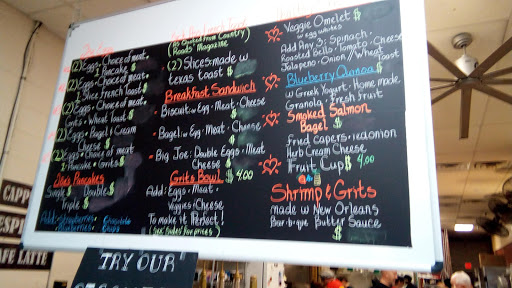 (2) Eggs • Choice of meat •
1 Pancake $
(2) Eggs • Choice of meat •
Slice French Toast $
(2) Eggs • Choice of meat •
Grits • Wheat Toast $
(2) Eggs • Bagel & Cream
Cheese $
(2) Eggs • Choice of meat
1 Pancake • Grits $
Pancakes
Single $ Double $
Triple $
Add: Strawberries •
Blueberries •
(As quoted from Country
Roads" Magazine
(2) Slices • made w
texas toast $
Breakfast Sandwich
• Biscuit w Egg • Meat • Cheese
$
• Bagel w Egg • Meat • Cheese
$
• Big Joe: Double Eggs • Meat
Cheese $
Grits Bowl $4.00
Add: Eggs • Meat •
Veggies • Cheese
To make it Perfect!
(See "Sides" for prices)
Veggie Omelet $
w egg whites
Add Any 3: Spinach •
Roasted Bells • Tomato • Cheese
Jalapeno • Onion / Wheat Toast
Blueberry Quinoa $
w Greek Yogurt • Home made
Granola • Fresh fruit
Smoked Salmon
Bagel $
fried capers • red onion
Herb Cream Cheese
Fruit Cup $4.00
Shrimp & Grits
made w New Orleans
Bar-b-que Butter Sauce
$
CAPP
ESP
CAFE LATTE
"TRY OUR"